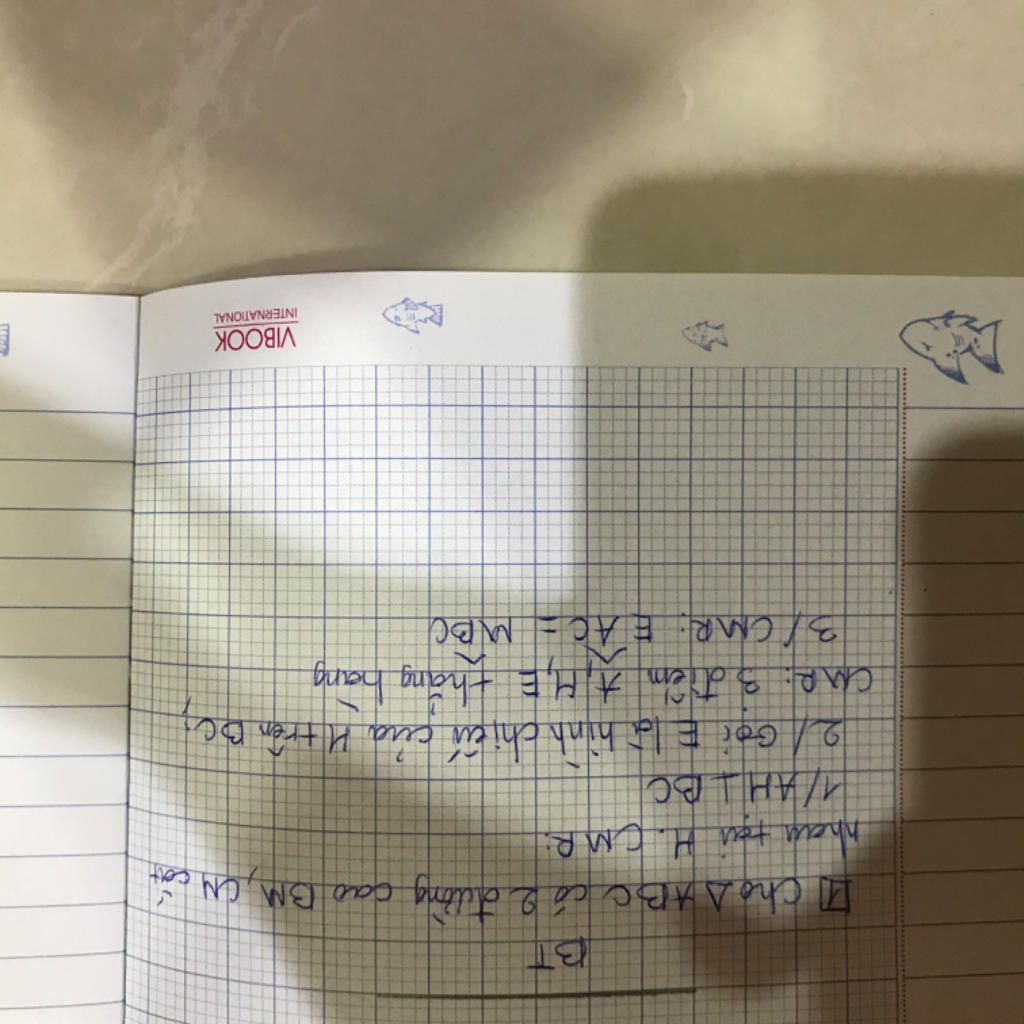 BT
1 Cho Δ ABC có 2 đường cao BM, CN cắt
nhau tại H. CMR:
1/ AH ⊥ BC
2/ Gọi E là hình chiếu của H trên BC;
CMR: 3 điểm A, H, E thẳng hàng
3/ CMR: EAC = MBC
VIBOOK
INTERNATIONAL